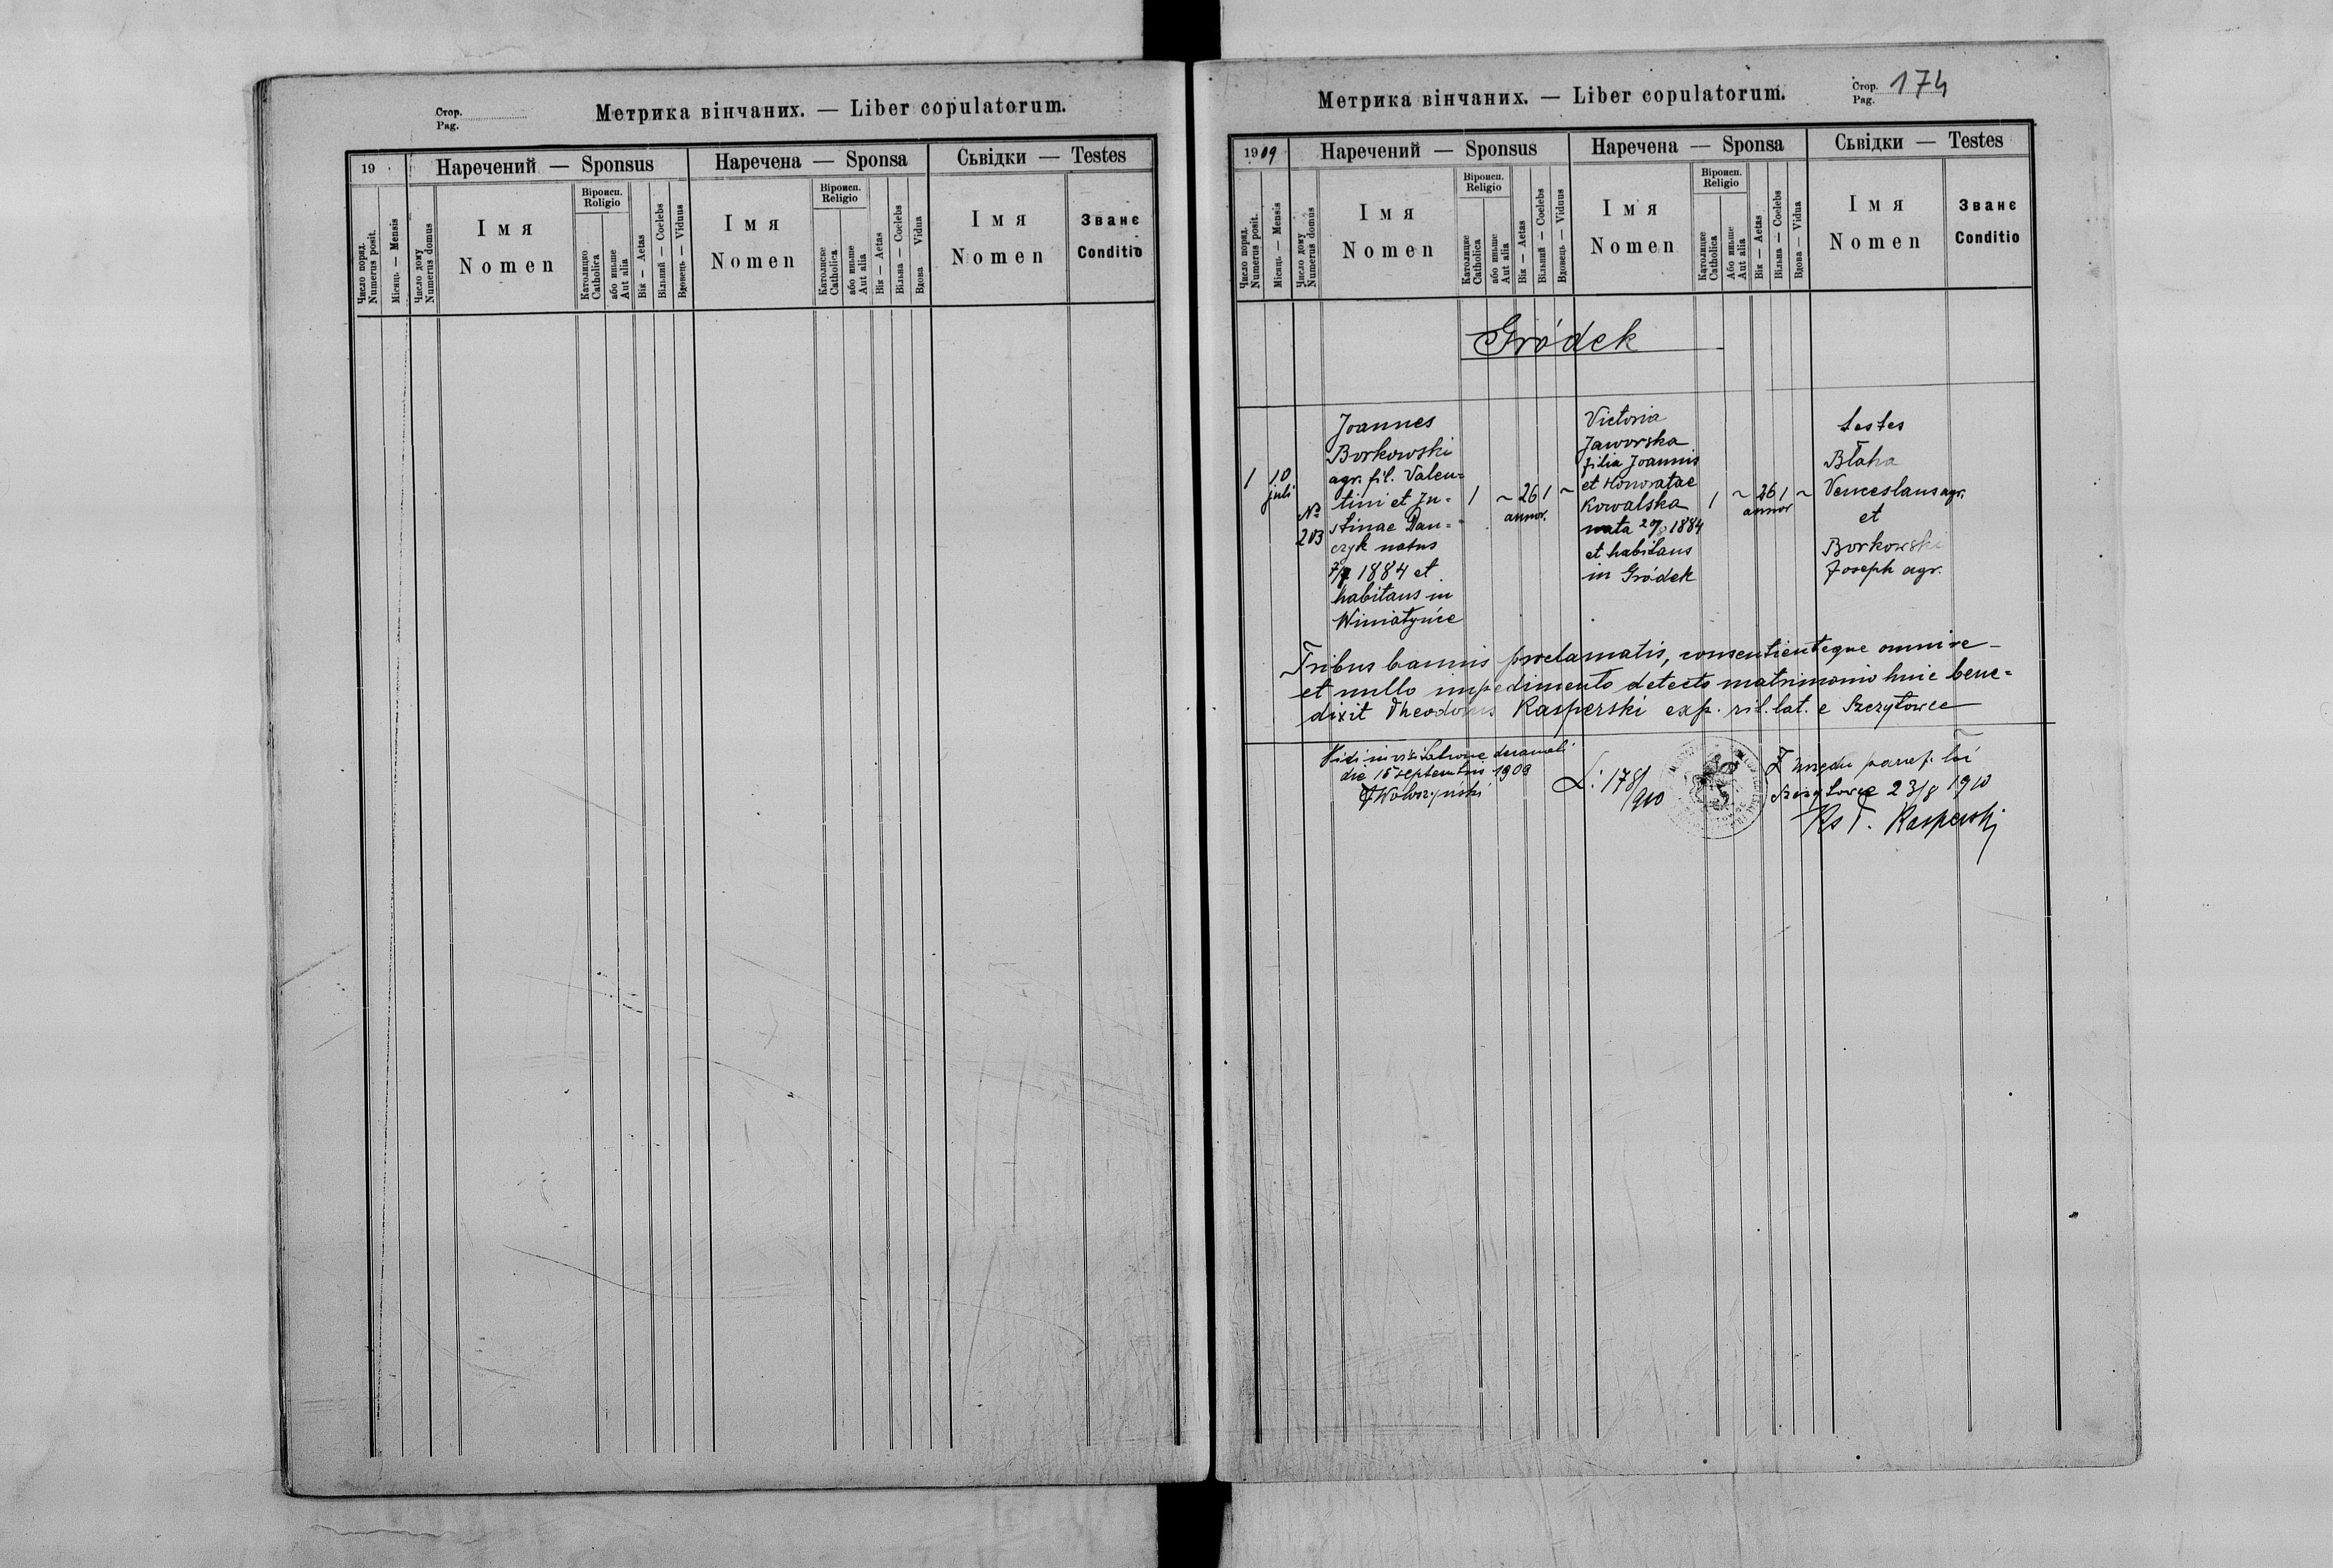 Стор.
Pag.
Метрика вінчаних. — Liber copulatorum.
19
Наречений — Sponsus
Наречена — Sponsa
Сьвідки — Testes
Число поряд.
Numerus posit.
Місяць — Mensis
Число дому
Numerus domus
Імя
Nomen
Віроисп.
Religio
Католицке
Catholica
або иньше
Aut alia
Вік — Aetas
Вільний — Coelebs
Вдовець — Viduus
Імя
Nomen
Віроисп.
Religio
Католицке
Catholica
або иньше
Aut alia
Вік — Aetas
Вільна — Coelebs
Вдова Vidua
Імя
Nomen
Званє
Conditio
Метрика вінчаних. — Liber copulatorum.
Стор.
Pag.
174
1909
Наречений — Sponsus
Наречена — Sponsa
Сьвідки — Testes
Число поряд.
Numerus posit.
Місяць — Mensis
Число дому
Numerus domus
Імя
Nomen
Віроисп.
Religio
Католицке
Catholica
або иньше
Aut alia
Вік — Aetas
Вільний — Coelebs
Вдовець — Viduus
Імя
Nomen
Віроисп.
Religio
Католицке
Catholica
Або иньше
Aut alia
Вік — Aetas
Вільна — Coelebs
Вдова — Vidua
Імя
Nomen
Званє
Conditio
Gródek
1
10
juli
No
203
Joannes
Borkowski
agr. fil. Valen=
tini et Ju-
stinae Dan=
czyk natus
1884 et
habitans in
Winiatyńce
1 ~ 26 1 ~
annor.
Victoria
Jaworska
filia Joannis
et Honoratae
Kowalska
nata 1884
et habitans
in Gródek
1 ~ 26 1 ~
annor
testes
Błaha
Venceslaus agr.
et
Borkowski
Joseph agr.
Tribus bannis proclamatis, consentienteque omni re-
et nullo impedimento detecto matrimonio huic bene=
dixit Theodorus Kasperski exp. rit. lat. e Szczytowce
Vidi in visitatione decanali
die 15 septembris 1909
Wołoszyński
L: 178/910
Z urzędu paraf. łać
Szczytowce 23/8 1910
Ks T. Kasperski